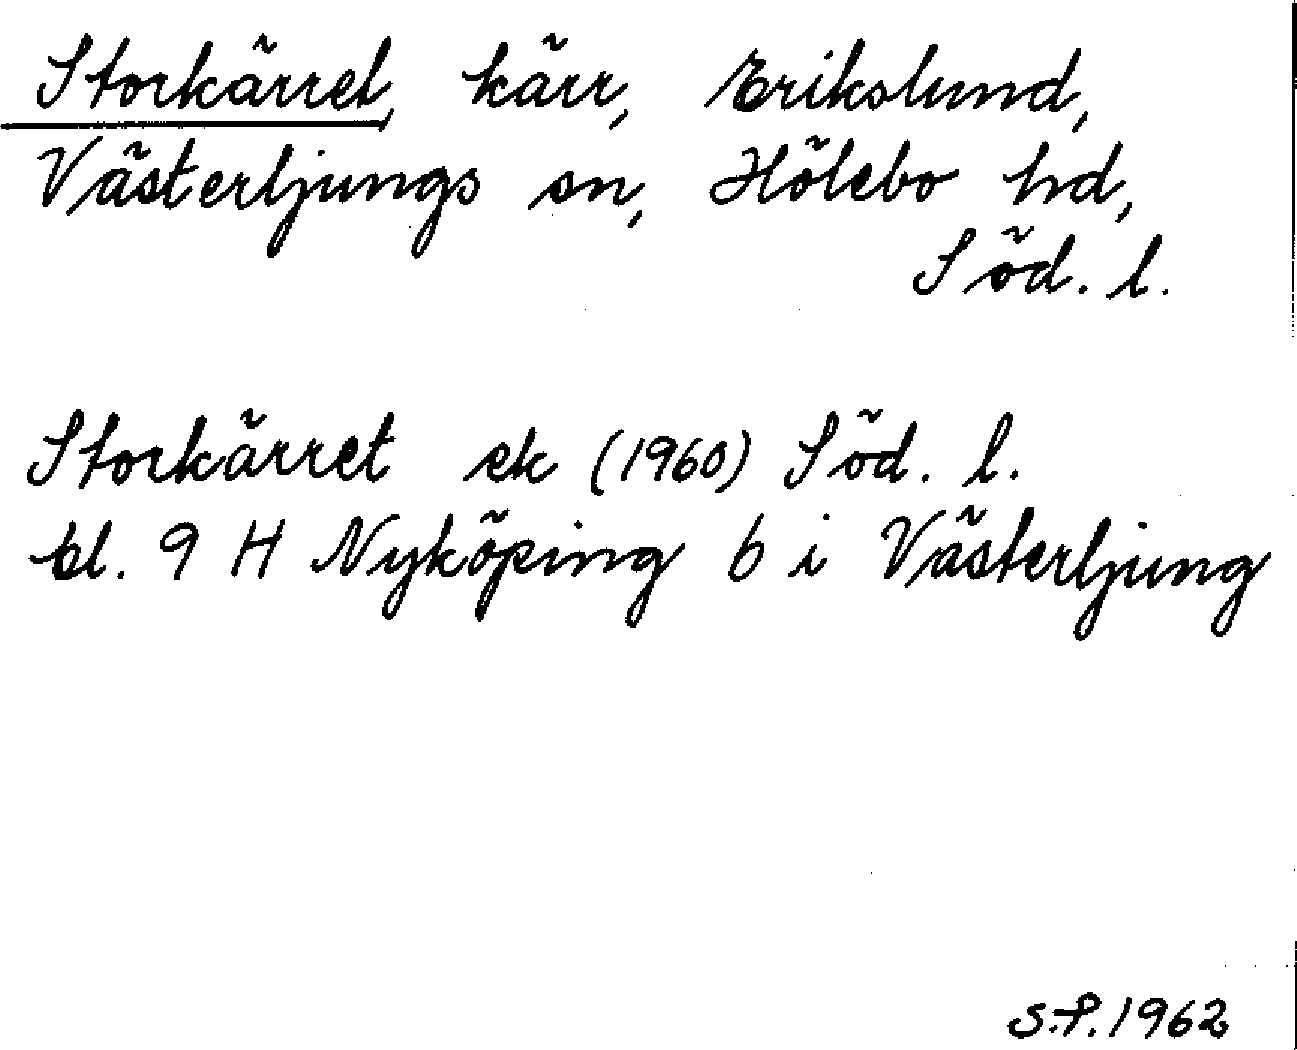 Storkärret, kärr, Erikslund,
Västerljungs sn, Hölebo hd,
Söd. l.
Storkärret ek (1960) Söd. l.
bl. 9 H Nyköping 6 i Västerljung
S.P. 1962